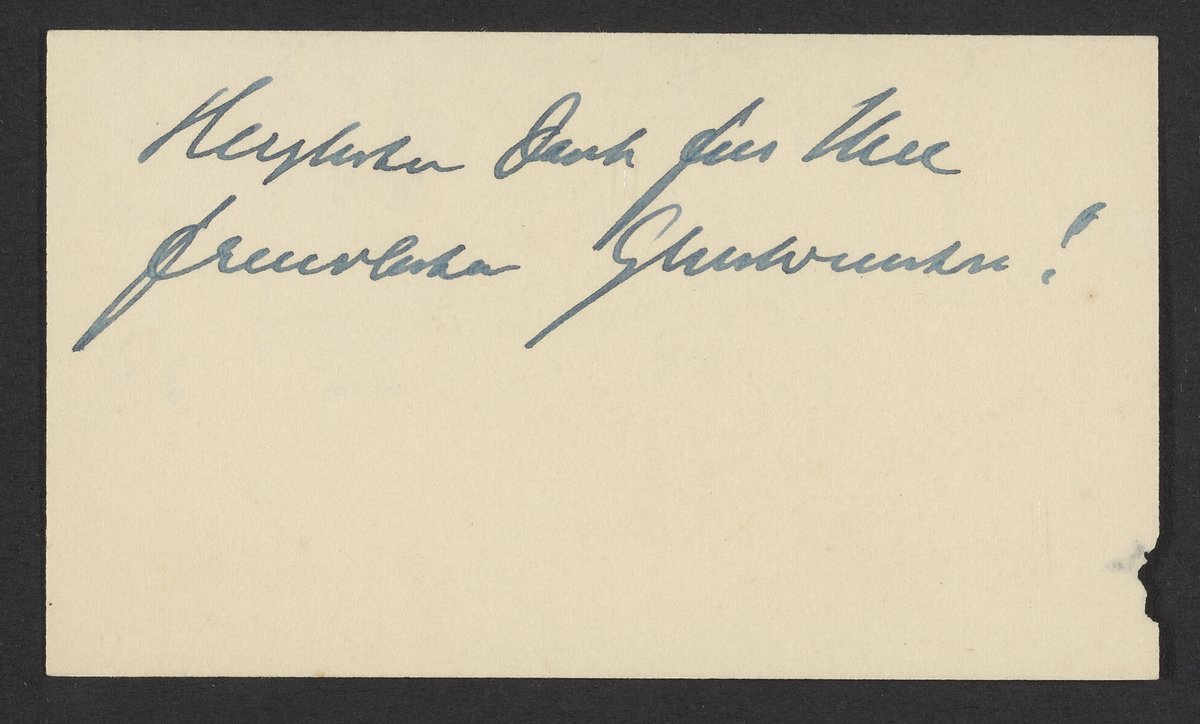 Herzlichen Dank für Ihre
freundlichen Glückwünsche!